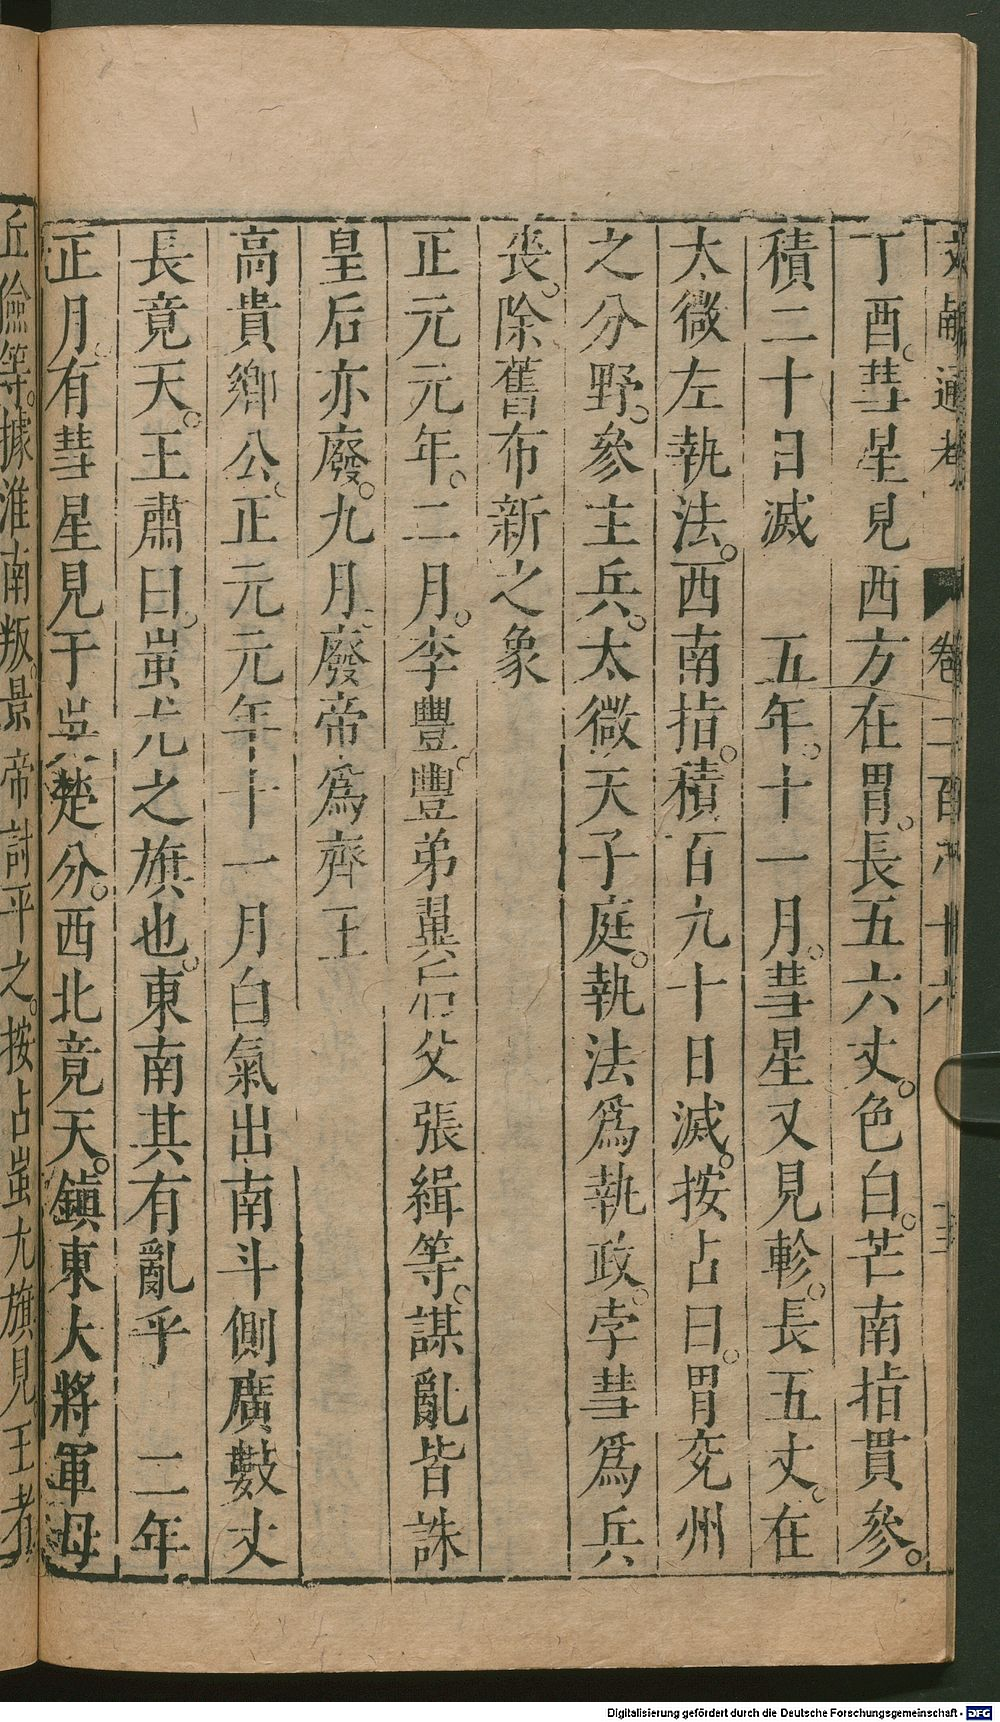 文獻通考 卷二百八十六
丁酉。彗星見西方在胃。長五六丈。色白。芒南指貫參。
積二十日滅 五年。十一月。彗星又見軫。長五丈。在
太微左執法。西南指。積百九十日滅。按占曰。胃兗州
之分野。參主兵。太微天子庭。執法爲執政。孛彗爲兵
喪。除舊布新之象
正元元年。二月。李豐。豐弟翼后父張緝等。謀亂皆誅
皇后亦廢。九月。廢帝爲齊王
高貴鄉公。正元元年十一月白氣出南斗側廣數丈
長竟天。王肅曰。蚩尤之旗也。東南其有亂乎 二年
正月。有彗星見于吳楚分。西北竟天。鎮東大將軍毋
丘儉等。據淮南叛。景帝討平之。按占蚩尤旗見王者
Digitalisierung gefördert durch die Deutsche Forschungsgemeinschaft - DFG